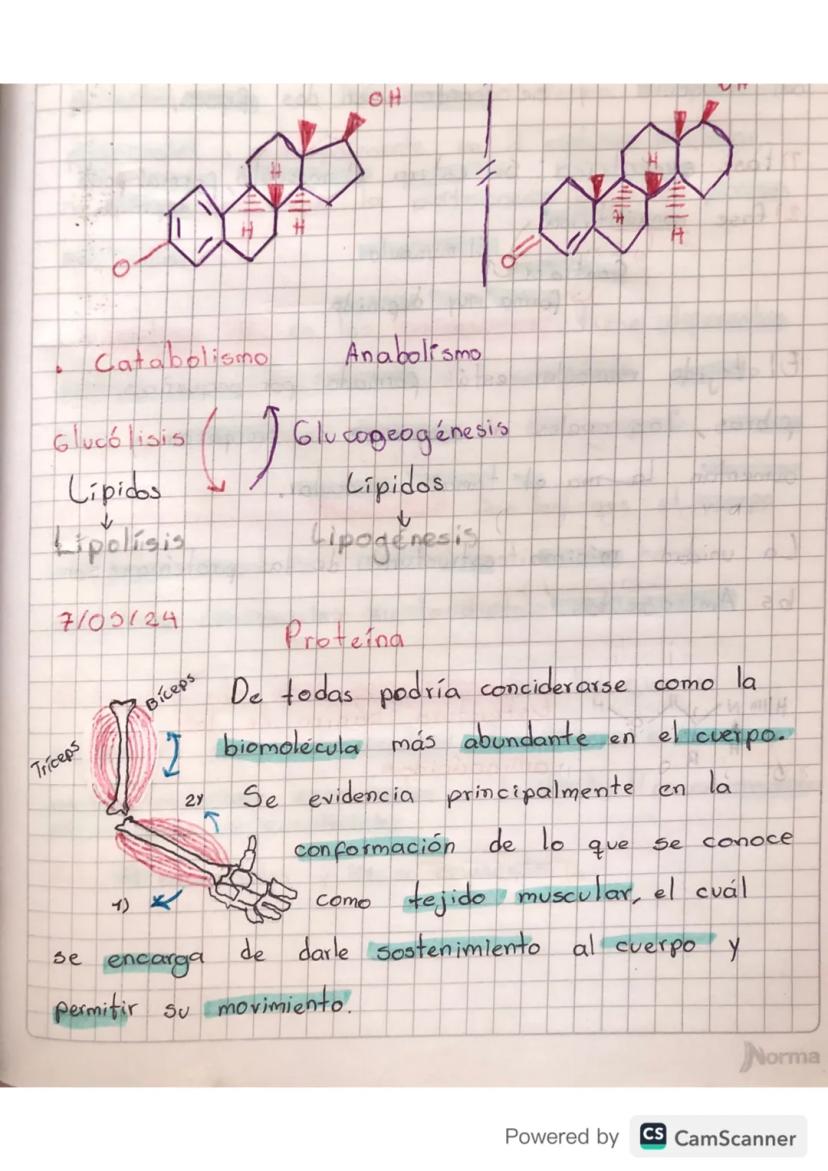 OH
OH
H
H
H
H
H
H
O
O
. Catabolismo Anabolismo
Glucólisis Glucogeogénesis
Lípidos Lípidos
Lipolísis Lipogénesis
7/09/24
Proteína
Bíceps
Tríceps
De todas podría conciderarse como la
biomolécula más abundante en el cuerpo.
2) Se evidencia principalmente en la
conformación de lo que se conoce
1) como tejido muscular, el cuál
se encarga de darle sostenimiento al cuerpo y
permitir su movimiento.
Norma
Powered by CS CamScanner